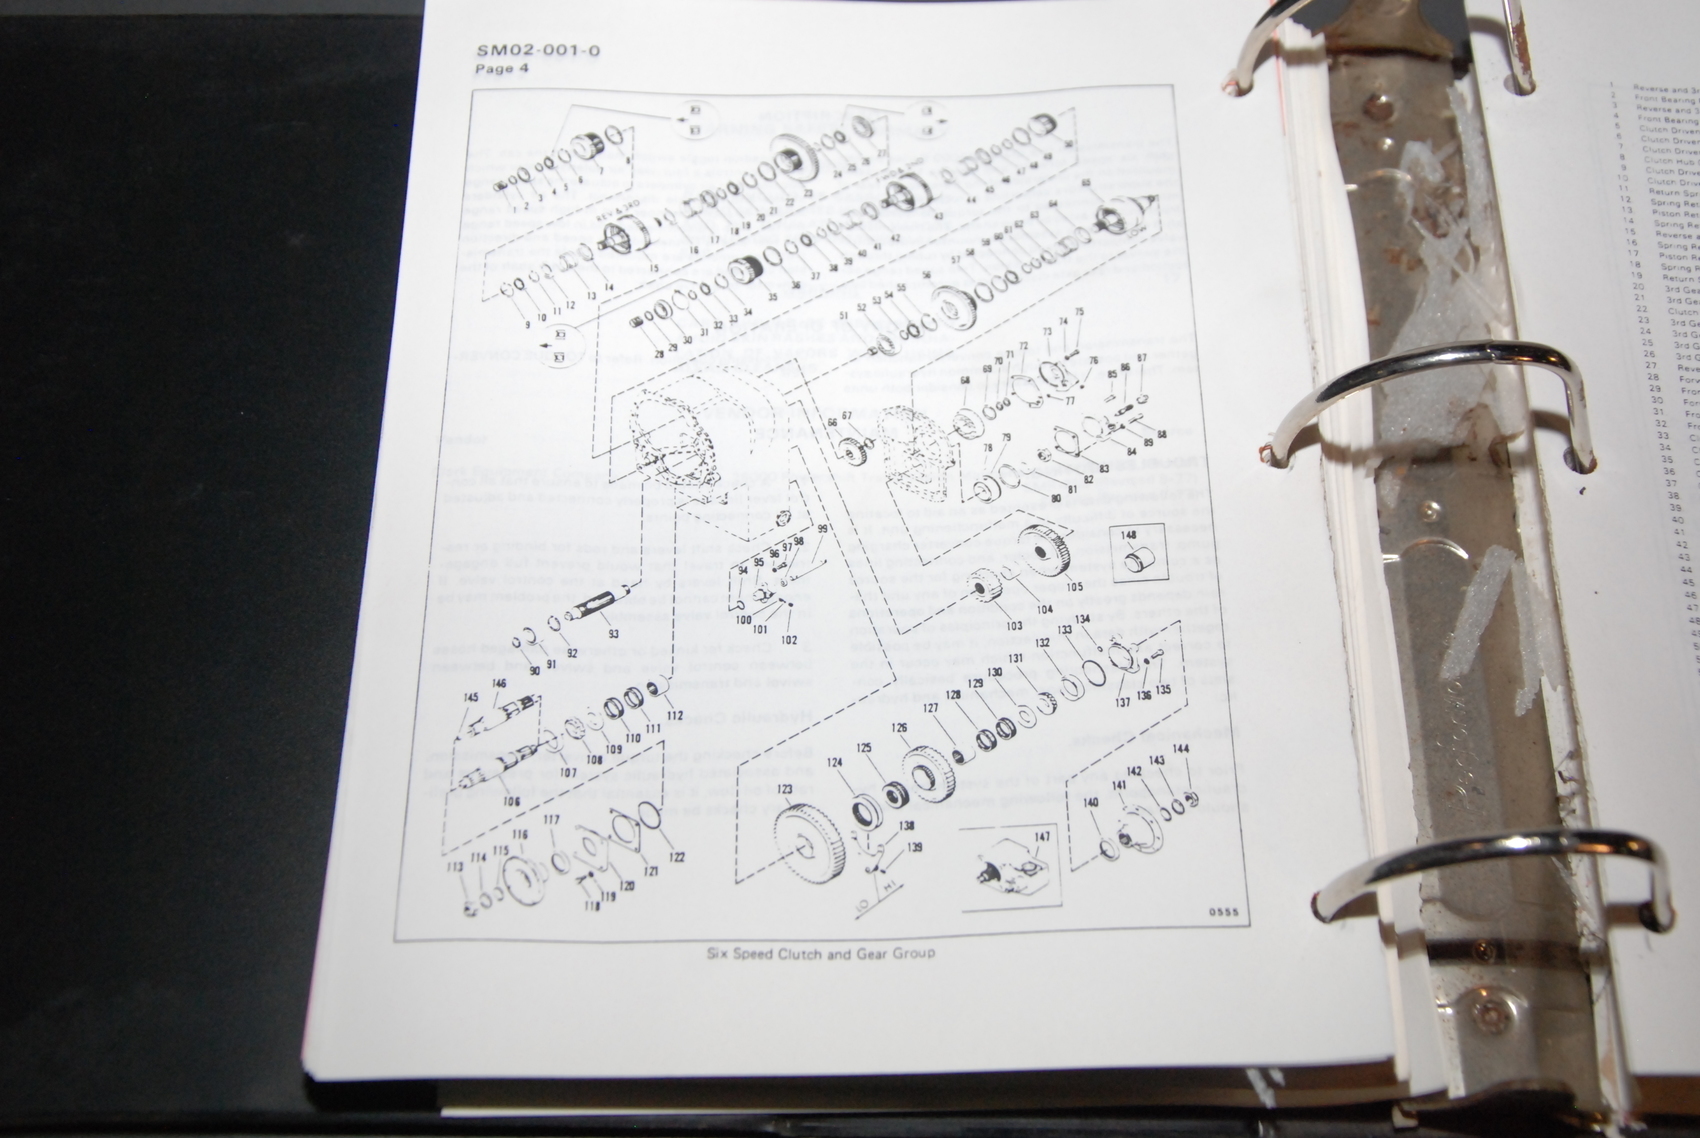 SM02-001-0
Page 4
1 2 3 4 5 6 7 8
REV & 3RD
9 10 11 12 13 14 15 16 17 18 19 20 21 22 23 24 25 26 27
28 29 30 31 32 33 34 35 36 37 38 39 40 41 42 43 44 45 46 47 48 49 50
LOW
51 52 53 54 55 56 57 58 59 60 61 62 63 64 65
66 67
68 69 70 71 72 73 74 75 76 77
78 79 80 81 82 83 84 85 86 87 88 89
90 91 92 93
94 95 96 97 98 99 100 101 102
103 104 105
148
145 146
106 107 108 109 110 111 112
113 114 115 116 117 118 119 120 121 122
123 124 125 126 127 128 129 130 131 132 133 134 135 136 137
138 139
LO HI
147
140 141 142 143 144
0555
Six Speed Clutch and Gear Group
1 Reverse and 3
2 Front Bearing
3 Reverse and 3
4 Front Bearing
5 Clutch Driven
6 Clutch Driven
7 Clutch Driven
8 Clutch Hub
9 Clutch Drive
10 Clutch Drive
11 Return Spr
12 Spring Ret
13 Piston Ret
14 Spring Re
15 Reverse a
16 Spring Re
17 Piston Re
18 Spring R
19 Return S
20 3rd Gea
21 3rd Ge
22 Clutch
23 3rd G
24 3rd G
25 3rd G
26 3rd G
27 Reve
28 Forv
29 Fron
30 Forv
31 Fr
32 Fr
33
34
35
36
37
38
39
40
41
42
43
44
45
46
47
48
49